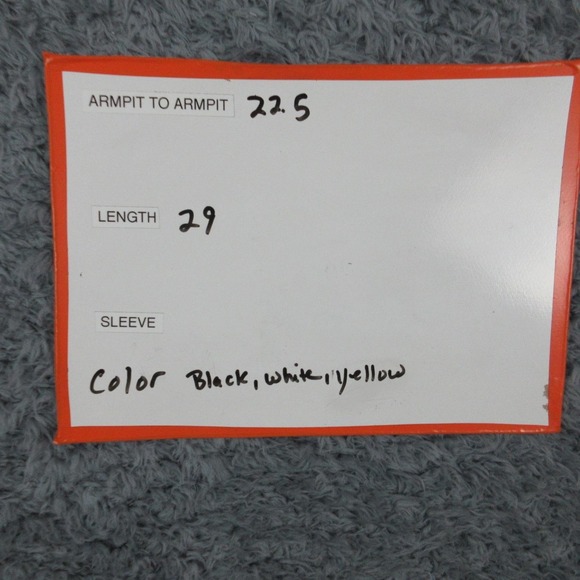 ARMPIT TO ARMPIT 22.5
LENGTH 29
SLEEVE
Color Black, white, yellow